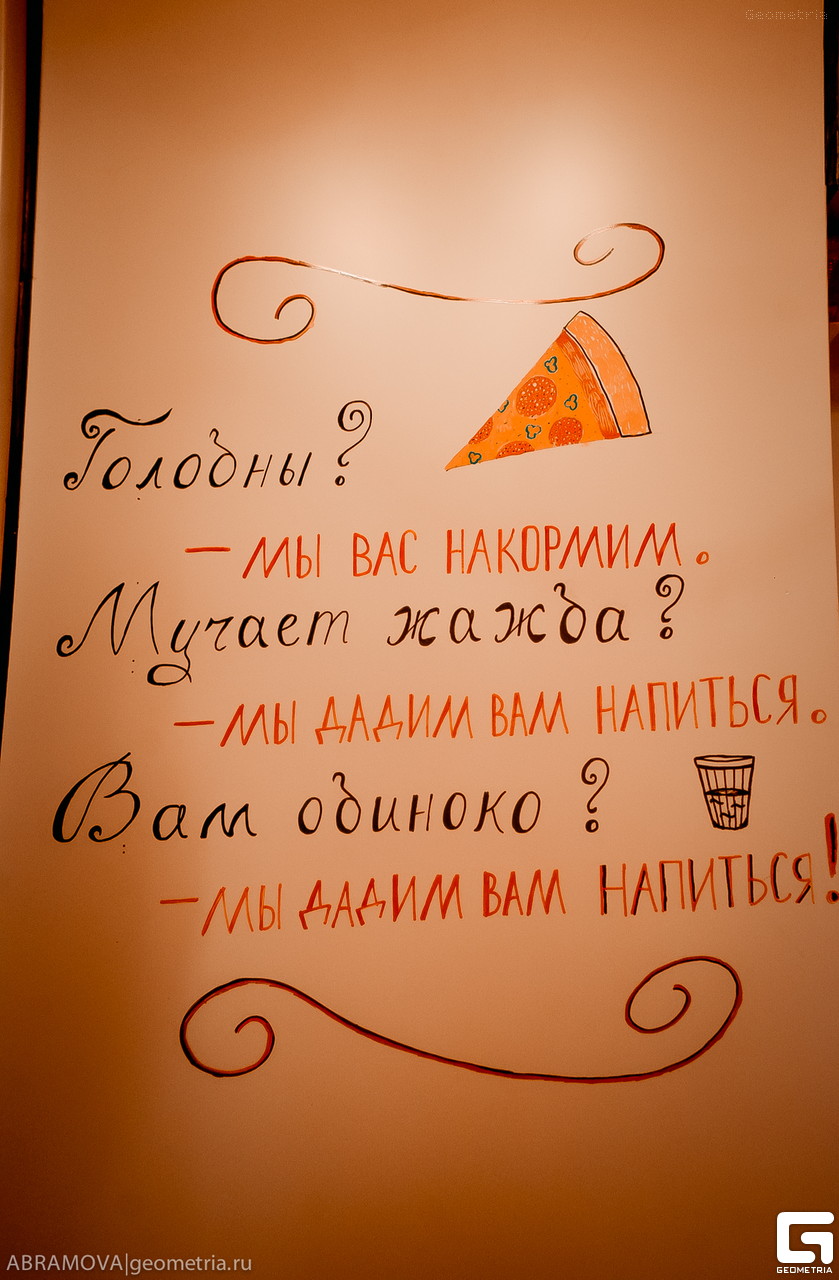 Geometria
Голодны?
— МЫ ВАС НАКОРМИМ.
Мучает жажда?
— МЫ ДАДИМ ВАМ НАПИТЬСЯ.
Вам одиноко?
— МЫ ДАДИМ ВАМ НАПИТЬСЯ!
ABRAMOVA|geometria.ru
GEOMETRIA